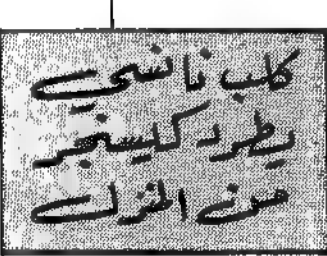 كلب نانسي
يطرد كيسنجر
من المنزل